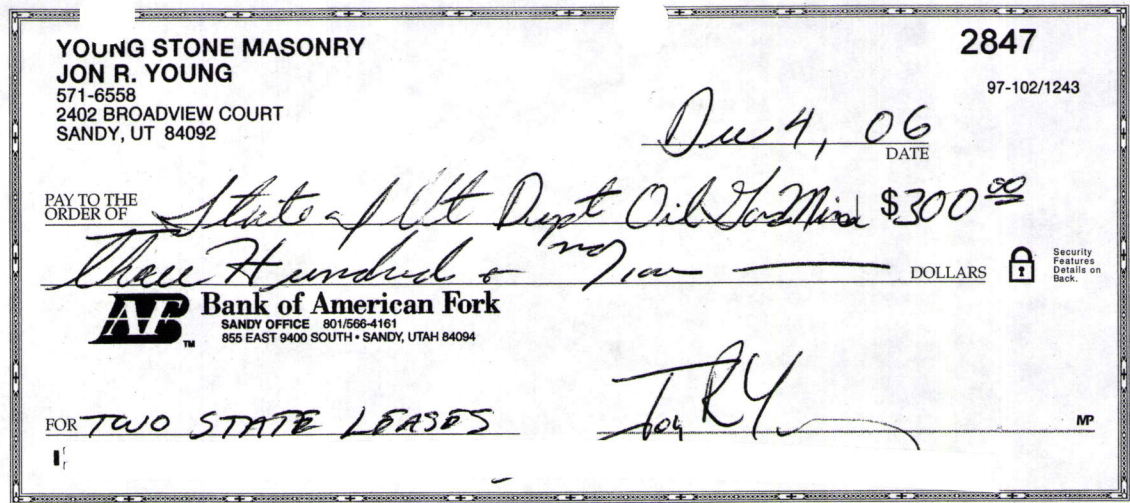 YOUNG STONE MASONRY
JON R. YOUNG
571-6558
2402 BROADVIEW COURT
SANDY, UT 84092
2847
97-102/1243
Dec 4, 06
DATE
PAY TO THE
ORDER OF State of Ut Dept Oil Gas Mind $300 00
Three Hundred & no/100
DOLLARS
Security
Features
Details on
Back.
AF TM
Bank of American Fork
SANDY OFFICE 801/566-4161
855 EAST 9400 SOUTH • SANDY, UTAH 84094
FOR TWO STATE LEASES
MP